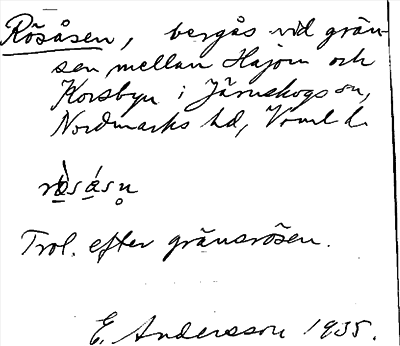 Rösåsen, bergås vid grän-
sen mellan Hajom och
Korsbyn i Järnskogs sn,
Nordmarks hd, Vrml d.
rö̀såsn̥
Trol. efter gränsrösen.
E. Andersson 1935.